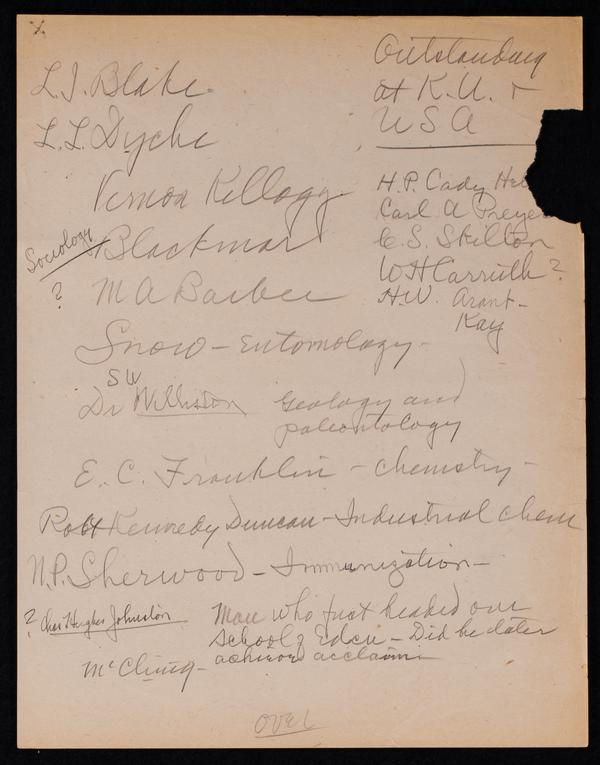 Outstanding
at K.U. +
USA
L.I. Blake
L.L. Dyche
Vernon Kellogg
Sociology Blackmar
?
M A Barber
H.P. Cady
Carl A Preyer
C.S. Skilton
W H Carruth?
H.W. Arant-
Kay
Snow - Entomology -
SW
Dr Williston Geology and
paleontology
E. C. Franklin - Chemistry -
Robt Kennedy Duncan - Industrial chem
N.P. Sherwood - Immunization -
? Chas Hughes Johnston Man who first headed our
School of Educ - Did he later
achieve acclaim -
McClung -
over